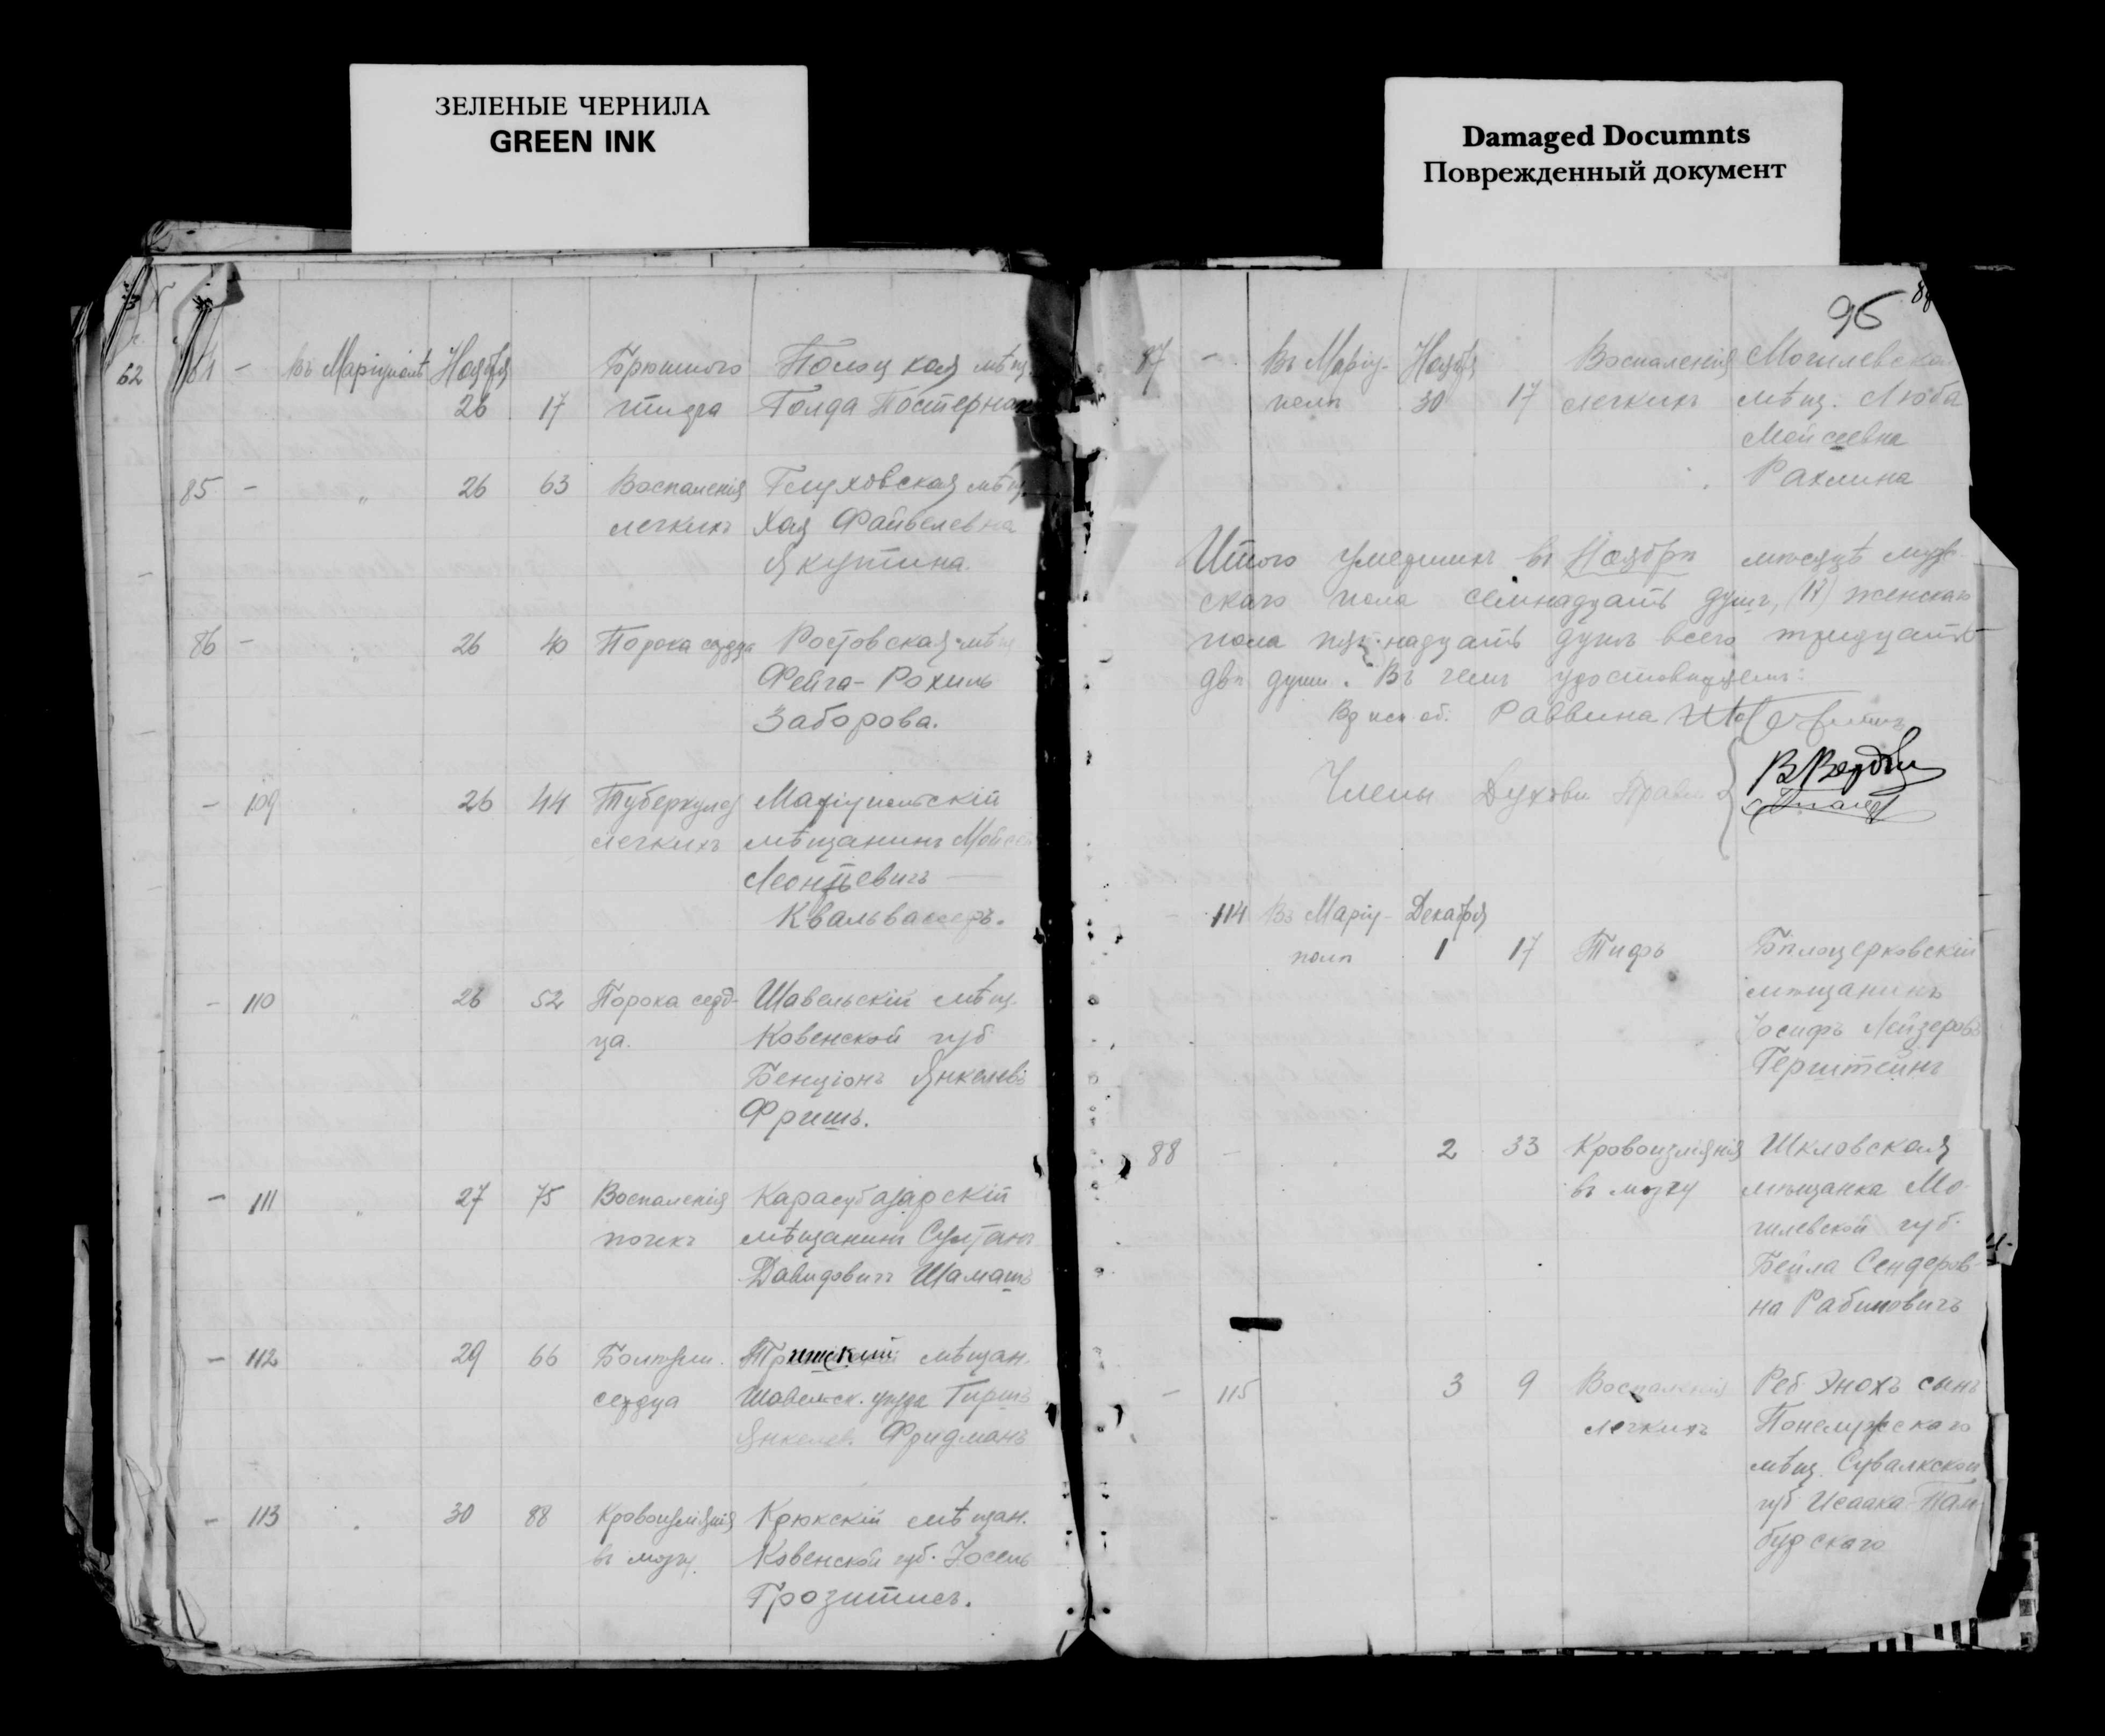 ЗЕЛЕНЫЕ ЧЕРНИЛА
GREEN INK
Damaged Documnts
Поврежденный документ
62 - въ Маріуполѣ Ноября Брюшного мѣщ.
26 17 тифа Голда Постернак
85 - " 26 63 Воспаленія Глуховская мѣщ.
легкихъ Хая Файвелевна
Якутина.
86 - 26 40 Порока сердца Ростовская мѣщ
Фейга-Рохиль
Заборова.
- 109 26 44 Туберкулез Маріупольскій
легкихъ мѣщанинъ Мойсей
Леонтьевичъ
Квальвассеръ.
- 110 " 26 52 Порока серд- Шавельскій мѣщ.
ца. Ковенской губ
Бенціонъ Янкелев
Фришъ.
- 111 27 75 Воспаленія Карасубазарскій
почекъ мѣщанинъ Султанъ
Давидовичъ Шамашъ
- 112 29 66 мѣщан.
сердца Шавельск. уѣзда Гиршъ
Янкелев. Фридманъ
- 113 30 88 Кровоизліянія Крюкскій мѣщан.
въ мозгу. Ковенской губ. Іосель
96
87 - Въ Маріу- Ноября Воспаленія Могилевска
полѣ 30 17 легкихъ мѣщ. Люба
Мойсеевна
Рахлина
Итого умершихъ въ Ноябрѣ мѣсяцѣ муж-
скаго пола семнадцать душъ, (17) женскаго
пола пятнадцать душъ всего тридцать
двѣ души. Въ чемъ удостовѣряемъ:
исп. об. Раввина
Члены Духовн Правл
- 114 Въ Маріу- Декабря
полѣ 1 17 Тифъ Бѣлоцерковскій
мѣщанинъ
Іосифъ Лейзеров
Герштейнъ
88 - 2 33 Кровоизліянія Шкловская
въ мозгу мѣщанка Мо-
гилевской губ.
Бейла Сендеров-
на Рабиновичъ
- 115 3 9 Воспаленія Реб Энохъ сынъ
легкихъ
мѣщ. Сувалкской
губ Исаака